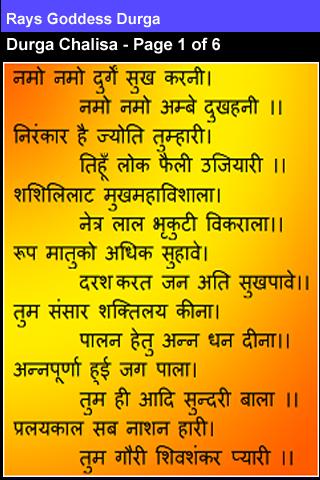 Rays Goddess Durga
Durga Chalisa - Page 1 of 6
नमो नमो दुर्गे सुख करनी।
नमो नमो अम्बे दुखहनी ।।
निरंकार है ज्योति तुम्हारी।
तिहूँ लोक फैली उजियारी ।।
शशिलिलाट मुखमहाविशाला।
नेत्र लाल भृकुटी विकराला।।
रूप मातुको अधिक सुहावे।
दरश करत जन अति सुखपावे।।
तुम संसार शक्तिलय कीना।
पालन हेतु अन्न धन दीना।।
अन्नपूर्णा हूई जग पाला।
तुम ही आदि सुन्दरी बाला ।।
प्रलयकाल सब नाशन हारी।
तुम गौरी शिवशंकर प्यारी ।।